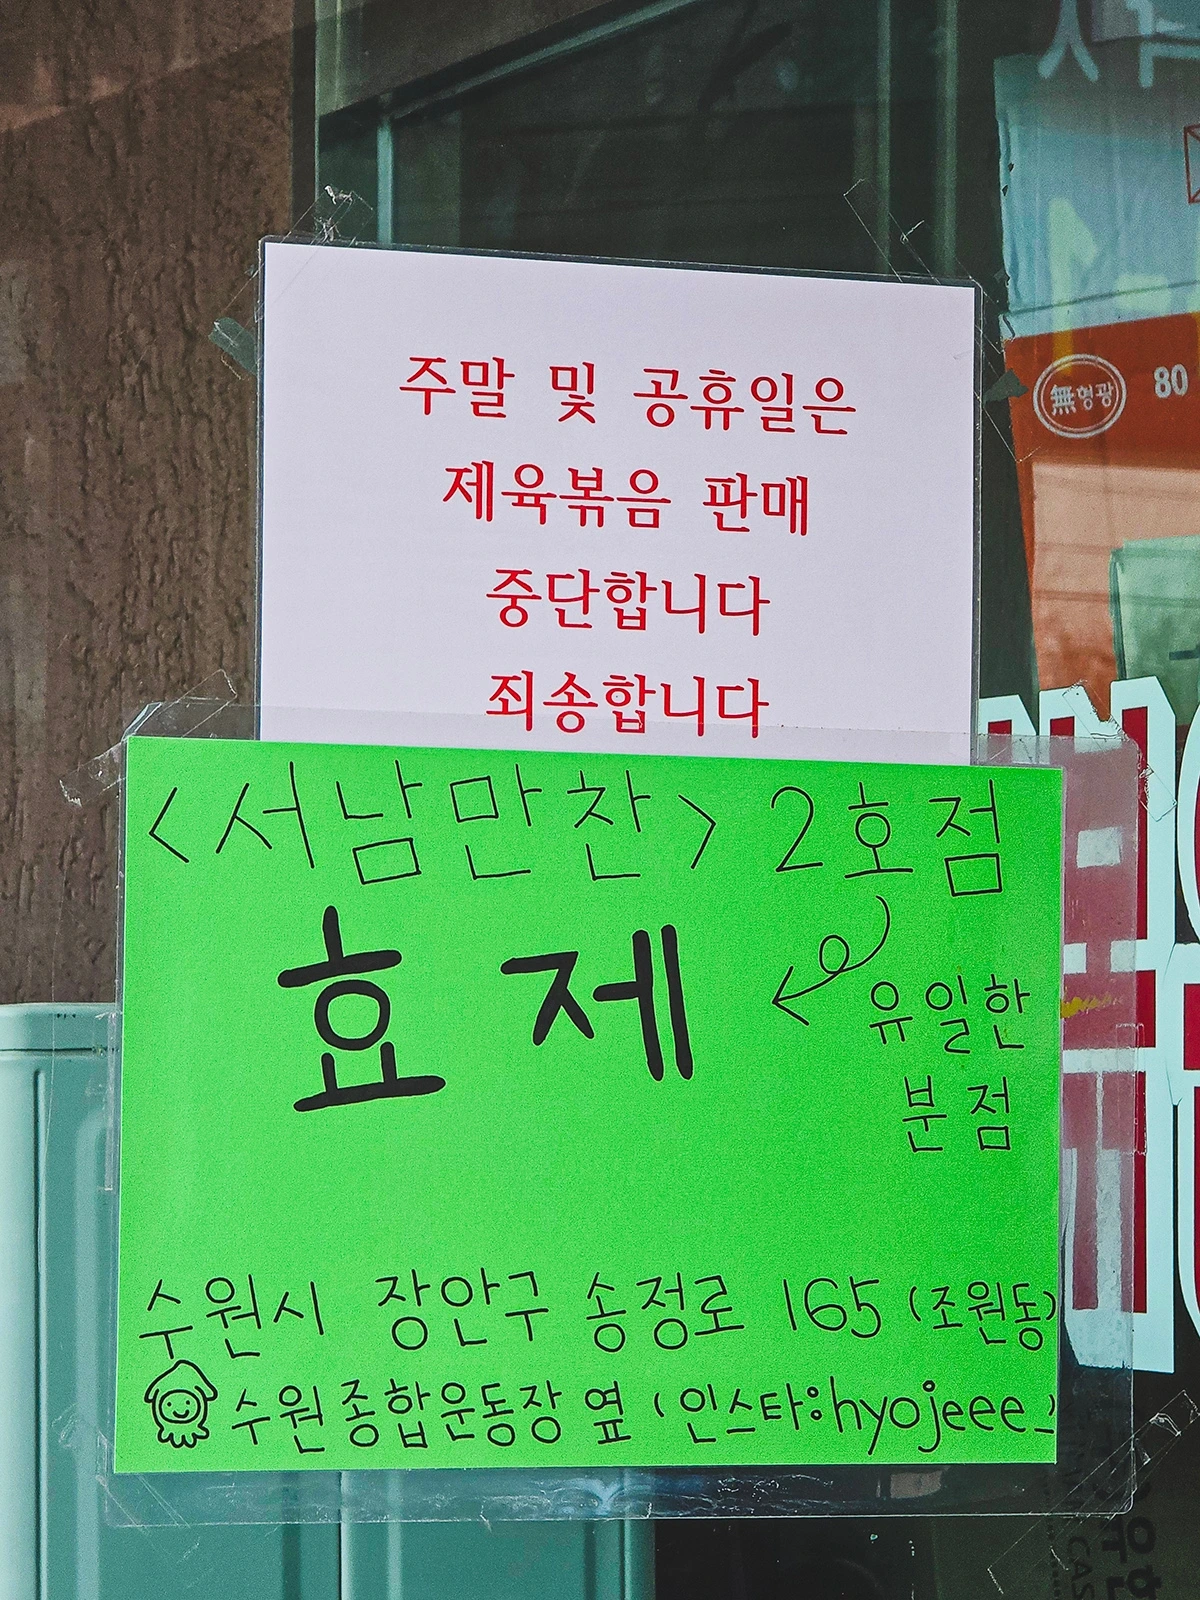 주말 및 공휴일은
제육볶음 판매
중단합니다
죄송합니다
<서남만찬> 2호점
효제
유일한
분점
수원시 장안구 송정로 165 (조원동)
수원종합운동장 옆 (인스타:hyojeee_
無형광
80